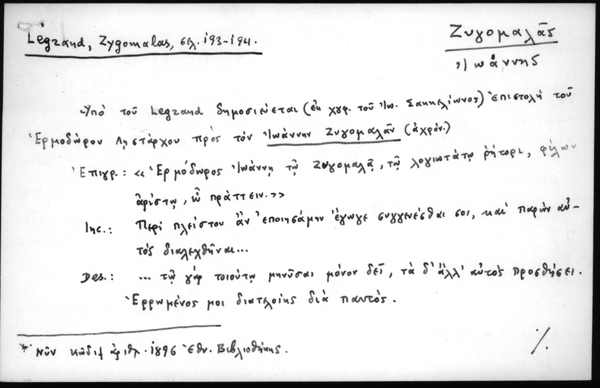 Legrand, Zygomalas, σελ. 193-194.
Ζυγομαλᾶς
Ἰωάννης
Ὑπὸ τοῦ Legrand δημοσιεύεται (ἐκ χφ. τοῦ Ἰω. Σακκελίωνος)* ἐπιστολὴ τοῦ
Ἑρμοδώρου Λῃστάρχου πρὸς τὸν Ἰωάννην Ζυγομαλᾶν (ἀχρόν.)
Ἐπιγρ.: «Ἑρμόδωρος Ἰωάννῃ τῷ Ζυγομαλᾷ, τῷ λογιωτάτῳ ῥήτορι, φίλων
ἀρίστῳ, εὖ πράττειν.»
Inc.: Περὶ πλείστου ἂν ἐποιησάμην ἔγωγε συγγενέσθαι σοι, καὶ παρὼν αὐ-
τὸς διαλεχθῆναι...
Des.: ... τῷ γὰρ τοιούτῳ μηνῦσαι μόνον δεῖ, τὰ δ' ἄλλ' αὐτὸς προσθήσει.
Ἐρρωμένος μοι διατελοίης διὰ παντός.
* Νῦν κώδιξ ἀριθ. 1896 Ἐθν. Βιβλιοθήκης.